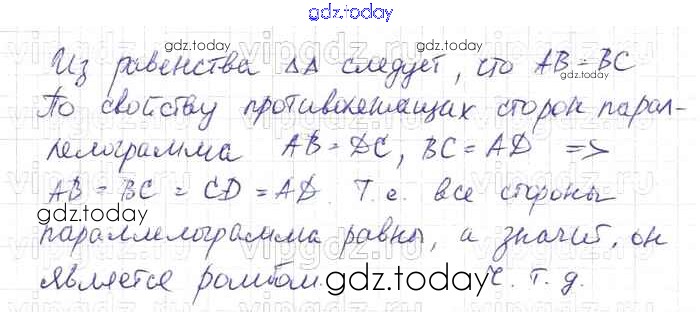 gdz.today
Из равенства ΔΔ следует, что AB = BC
По свойству противолежащих сторон парал-
лелограмма AB = DC, BC = AD =>
AB = BC = CD = AD. Т.е. все стороны
параллелограмма равны, а значит, он
является ромбом. ч. т. д.
gdz.today
gdz.today
gdz.today
gdz.today
gdz.today
gdz.today